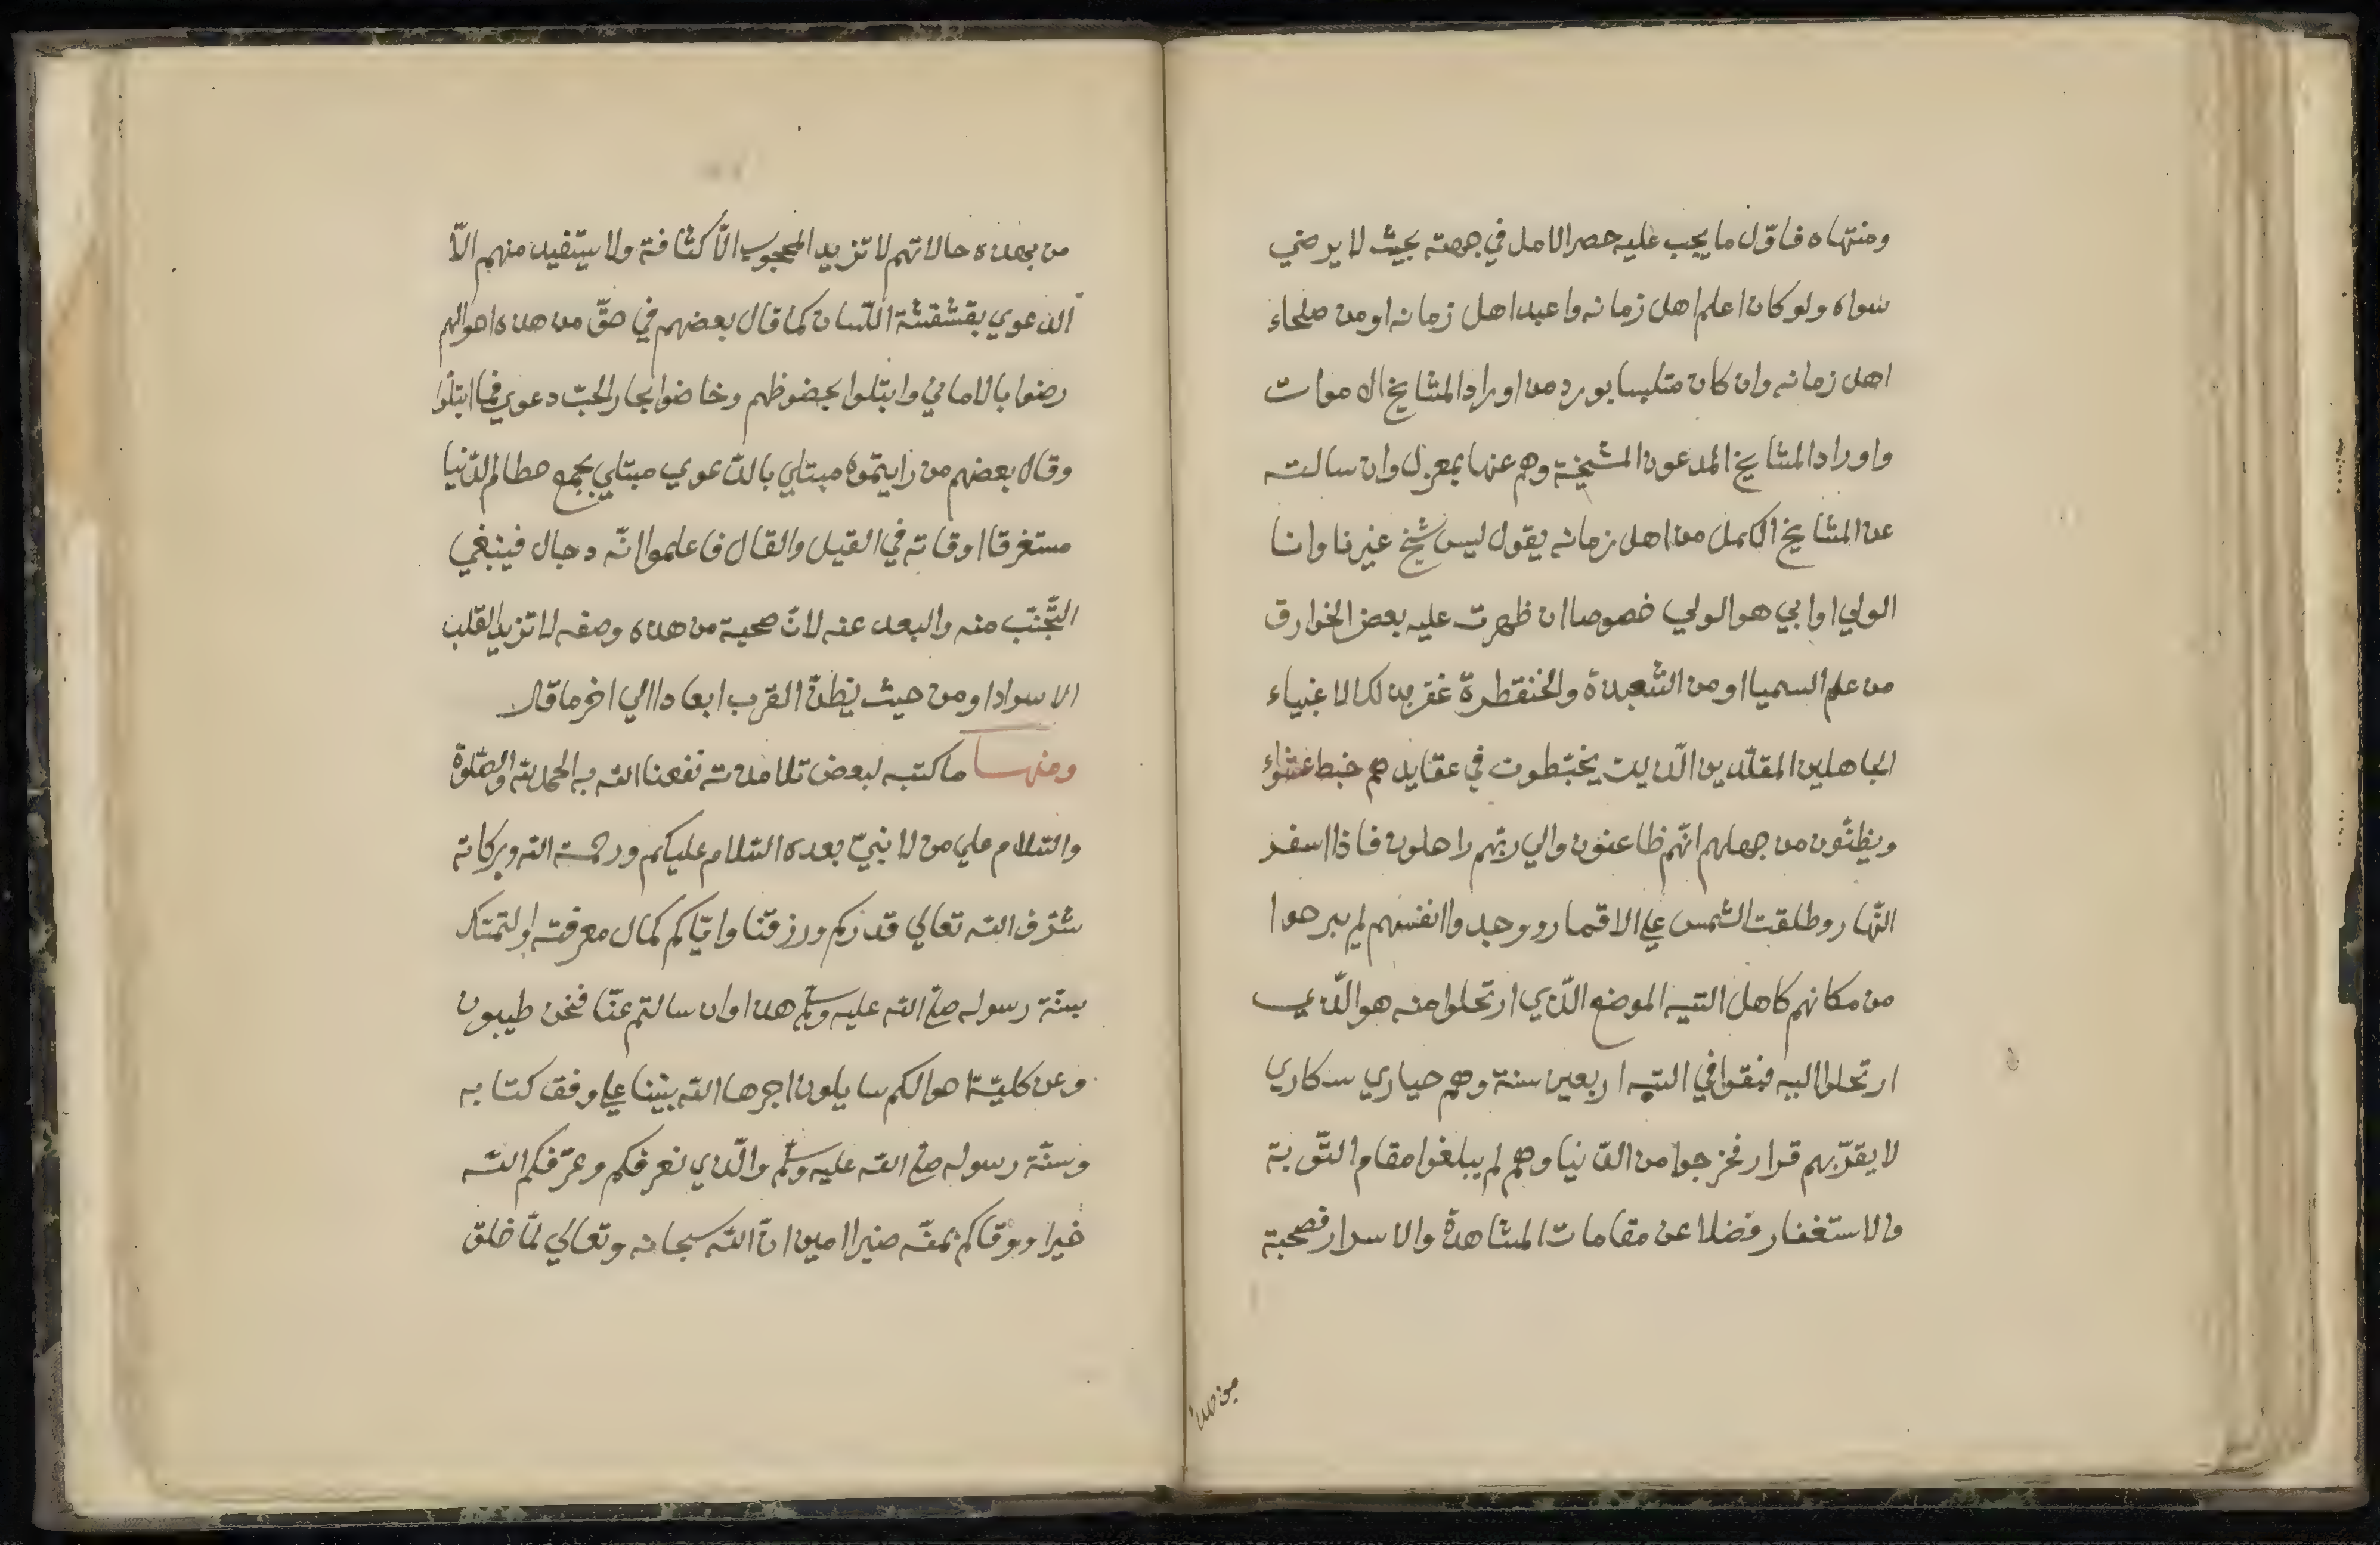 ومنتهاه فاوّل ما يجب عليه حصر الامل في جهته بحيث لا يرضي
سواه ولو كان اعلم اهل زمانه واعبد اهل زمانه او من صلحاء
اهل زمانه وان كان متلبسا بورد من اوراد المشايخ الاموات
واوراد المشايخ المدعون المشيخة وهم عنها بمعزل وان سالته
عن المشايخ الكمل من اهل زمانه يقول ليس شيخ غيرنا وانا
الولي او ابي هو الولي خصوصا ان ظهرت عليه بعض الخوارق
من علم السميا او من الشعبذة والخنقطرة غفر بذلك الاغبياء
الجاهلين المقلّدين الّذين يخبّطون في عقايدهم خبط عشواء
ويظنّون من جهلهم انّهم ظاعنون والي ربّهم راحلون فاذا اسفر
النّهار وطلقت الشمس علي الاقمار ووجدوا انفسهم لم يبرحوا
من مكانهم كاهل التيه الموضع الّذي ارتحلوا منه هو الّذي
ارتحلوا اليه فبقوا في التيه اربعين سنة وهم حياري سكاري
لا يقرّ بهم قرار فخرجوا من الدّنيا وهم لم يبلغوا مقام التّوبة
والاستغفار فضلا عن مقامات المشاهدة والاسرار فصحبة
من هذه
من هذه حالاتهم لا تزيد المحجوب الّا كثافة ولا يستفيد منهم الّا
الدعوي بقشقشة اللّسان كما قال بعضهم في حقّ من هذه احوالهم
رضوا بالاماني وابتلوا بحضوظهم وخاضوا بحار الحبّ دعوي فما ابتلّوا
وقال بعضهم من رايتموه مبتلي بالدّعوي مبتلي بجمع حطام الدّنيا
مستغرقا اوقاته في القيل والقال فاعلموا انّه دجال فينبغي
التّجنّب منه والبعد عنه لانّ صحبة من هذه وصفه لا تزيد القلب
الا سوادا ومن حيث يظنّ القرب ابعادا الي اخر ما قال
ومنها ما كتبه لبعض تلامذته نفعنا الله به الحمد لله والصّلوة
والسّلام علي من لا نبيّ بعده السّلام عليكم ورحمة الله وبركاته
شرّف الله تعالي قدركم ورزقنا وايّاكم كمال معرفته والتمسّك
بسنّة رسوله صلى الله عليه وسلم هذا وان سالتم عنّا فنحن طيبون
وعن كليّة احوالكم سايلون اجرها الله بيننا علي وفق كتابه
وسنّة رسوله صلى الله عليه وسلم والّذي نعرفكم وعرّفكم الله
خيرا ووقاكم بمنّه ضيرا امين انّ الله سبحانه وتعالي لمّا خلق